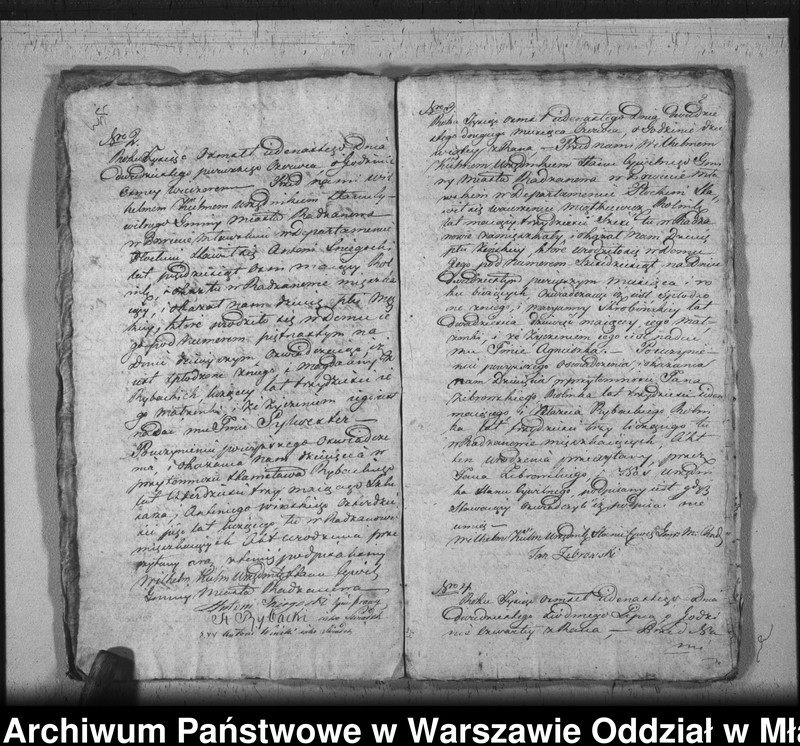 Nro 2.
Roku Tysiąc Osmset iedenastego Dnia
dwudziestego pierwszego Czerwca o godzinie
osmey wieczorem — Przed nami Wil-
helmem Kuhnem Urzędnikiem Stanu Cy-
wilnego Gminy Miasta Radzanowa
w Powiecie Mławskim w Departamencie
Płockim Stawił się Antoni
lat pięćdziesiąt osm maiący Rol-
nik, w Radzanowie mieszka-
iący, i okazał nam dziecię płci męz-
kiey, które urodziło się w Domu ie-
go pod Numerem piętnastym na
dniu dzisieyszym oświadczaiąc iż
iest spłodzone z niego i Magdaleny z
Rybackich maiącey lat trzydzieści ie-
go małżonki, i że życzeniem iego iest
nadać mu Imie Sylwester —
Po uczynieniu powyższego oświadcze-
nia, i okazania nam dziecięcia w
przytomności Stanisława Rybackiego
lat czterdzieści trzy maiącego
Antoniego
lat liczącego tu w Radzanowie
mieszkaiących Akt urodzenia prze-
czytany oraz z niemi podpisaliśmy
Wilhelm Kuhn Urzędnik Stanu Cywil:
Gminy Miasta Radzanowa
Antoni
St Rybacki iako świadek
xxx Antoni iako świadek
Nro 3.
Roku Tysiąc Osmset iedenastego Dnia Dwudzie-
stego drugiego miesiąca Czerwca, o Godzinie dzie-
wiątey z Rana — Przed nami Wilhelmem
Kuhnem Urzędnikiem Stanu Cywilnego Gmi-
ny Miasta Radzanowa w Powiecie Mła-
wskim w Departamencie Płockim Sta-
wił się Wawrzeniec Miętkiewicz Rolnik
lat maiący trzydzieści sześć tu w Radza-
nowie zamieszkały, i okazał Nam dziecię
płci żeńskiey które urodziło się w domu
iego pod Numerem sześćdziesiąt na Dniu
dwudziestym pierwszym miesiąca i ro-
ku bieżących, oświadczaiąc iż iest spłodzo-
ne z niego, i Maryanny lat
dwadzieścia dziewięć maiącey, iego mał-
żonki, i że życzeniem iego iest nadać
mu Imie Agnieszka. — Po uczynie-
niu powyższego oświadczenia i okazania
nam Dziecięcia w przytomności Jana
Żebrowskiego Rolnika lat trzydzieści ieden
maiącego i Rybackiego Rolni-
ka lat trzydzieści trzy liczącego tu
w Radzanowie mieszkaiących, Akt
ten urodzenia przeczytany, przez
Jana Żebrowskiego i Nas Urzędni-
ka Stanu Cywilnego podpisany iest gdyż
Stawaiący oświadczył iż podpisać nie
umie —
Wilhelm Kuhn Urzędnik Stanu Cywil: Gminy M: Radz
Jan Żebrowski
Nro 4.
Roku Tysiąc Osmset iedenastego Dnia
dwudziestego siodmego Lipca o Godzi-
nie czwartey z Rana — Przed Na-
mi
Archiwum Państwowe w Warszawie Oddział w Mła